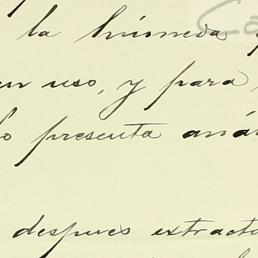 la húmeda
en uso, y para
lo presenta aná
despues extracta